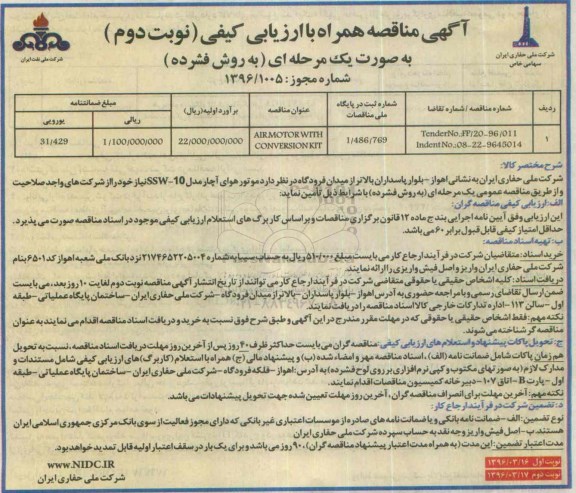 آگهی مناقصه همراه با ارزیابی کیفی (نوبت دوم)
به صورت یک مرحله ای (به روش فشرده)
شماره مجوز: ۱۳۹۶/۱۰۰۵
شرکت ملی حفاری ایران
سهامی خاص
شرکت ملی نفت ایران
ردیف
شماره مناقصه / شماره تقاضا
شماره ثبت در پایگاه ملی مناقصات
عنوان مناقصه
برآورد اولیه(ریال)
مبلغ ضمانتنامه
ریالی
یورویی
۱
TenderNo.:FP/20-96/011
Indent No.:08-22-9645014
1/486/769
AIR MOTOR WITH CONVERSION KIT
22/000/000/000
1/100/000/000
31/429
شرح مختصر کالا:
شرکت ملی حفاری ایران به نشانی اهواز - بلوار پاسداران بالاتر از میدان فرودگاه در نظر دارد موتور هوای آچار مدل SSW-10 نیاز خود را از شرکت های واجد صلاحیت
و از طریق مناقصه عمومی یک مرحله ای (به روش فشرده) با شرایط ذیل تأمین نماید:
الف: ارزیابی کیفی مناقصه گران:
این ارزیابی وفق آیین نامه اجرایی بند ج ماده ۱۲ قانون برگزاری مناقصات و براساس کاربرگ های استعلام ارزیابی کیفی موجود در اسناد مناقصه صورت می پذیرد.
حداقل امتیاز کیفی قابل قبول برابر ۶۰ می باشد.
ب: تهیه اسناد مناقصه:
خرید اسناد: متقاضیان شرکت در فرآیند ارجاع کار می بایست مبلغ ۵۱۰/۰۰۰ ریال به حساب سیبا به شماره ۲۱۷۴۶۵۲۲۰۵۰۰۴ نزد بانک ملی شعبه اهواز کد ۶۵۰۱ بنام
شرکت ملی حفاری ایران واریز و اصل فیش واریزی را ارائه نمایند.
دریافت اسناد: کلیه اشخاص حقیقی یا حقوقی متقاضی شرکت در فرآیند ارجاع کار می توانند از تاریخ انتشار آگهی مناقصه نوبت دوم لغایت ۱۰ روز بعد، می بایست
ضمن ارسال تقاضای رسمی و با مراجعه حضوری به آدرس اهواز - بلوار پاسداران - بالاتر از میدان فرودگاه - شرکت ملی حفاری ایران - ساختمان پایگاه عملیاتی - طبقه
اول - سالن ۱۱۳ - اداره تدارکات خارجی کالا اسناد مناقصه را دریافت نمایند.
نکته مهم: فقط اشخاص حقیقی یا حقوقی که در مهلت مقرر مندرج در این آگهی و طبق شرح فوق نسبت به خرید و دریافت اسناد مناقصه اقدام می نمایند به عنوان
مناقصه گر شناخته می شوند.
ج: تحویل پاکات پیشنهاد و استعلام های ارزیابی کیفی: مناقصه گران می بایست حداکثر ظرف ۴۰ روز پس از آخرین روز مهلت دریافت اسناد مناقصه، نسبت به تحویل
هم زمان پاکات شامل ضمانت نامه (الف)، اسناد مناقصه مهر و امضاء شده (ب) و پیشنهاد مالی (ج) همراه با استعلام (کاربرگ) های ارزیابی کیفی شامل مستندات و
مدارک لازم (به صورتهای مکتوب و کپی نرم افزاری بر روی لوح فشرده) به آدرس: اهواز - فلکه فرودگاه - شرکت ملی حفاری ایران - ساختمان پایگاه عملیاتی - طبقه
اول - پارت B - اتاق ۱۰۷ - دبیرخانه کمیسیون مناقصات اقدام نمایند.
نکته مهم: آخرین مهلت برای انصراف مناقصه گران، آخرین روز مهلت تعیین شده جهت تحویل پیشنهادات می باشد.
د: تضمین شرکت در فرآیند ارجاع کار:
نوع تضمین: الف - ضمانت نامه بانکی و یا ضمانت نامه های صادره از موسسات اعتباری غیر بانکی که دارای مجوز فعالیت از سوی بانک مرکزی جمهوری اسلامی ایران
هستند. ب - اصل فیش واریز وجه نقد به حساب سپرده شرکت ملی حفاری ایران
مدت اعتبار تضمین: این مدت (به همراه مدت اعتبار پیشنهاد مناقصه گران)، ۹۰ روز می باشد و برای یک بار در سقف اعتبار اولیه قابل تمدید خواهد بود.
WWW.NIDC.IR
شرکت ملی حفاری ایران
نوبت اول ۱۳۹۶/۰۳/۱۶
نوبت دوم ۱۳۹۶/۰۳/۱۷